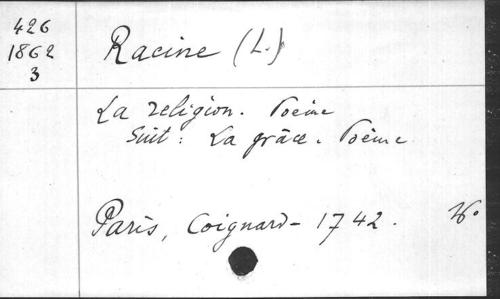 426
1862
3
Racine (L.)
La religion. Poème
Suit : La grâce. Poème
Paris, Coignard - 1742.